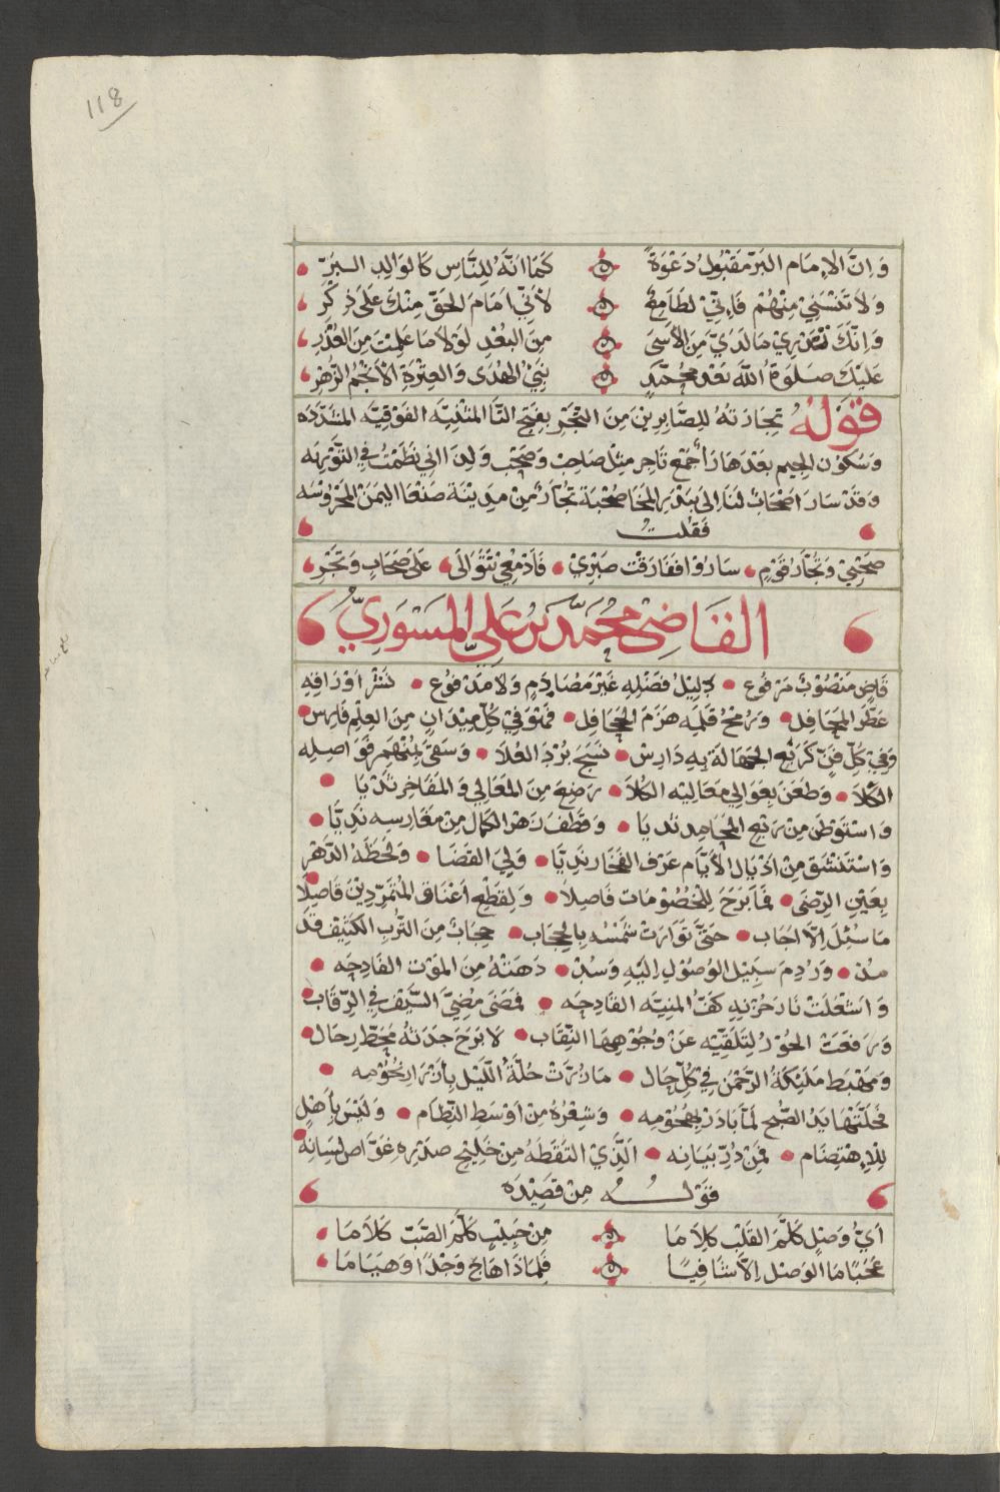 118
وَاِنَّ الاِمَام البَرّ مَقْبُولُ دَعْوَةً كَمَا انَّهُ لِلنَّاسِ كَالوَالِدِ البَرّ
وَلاَ تَنْسَنِيْ مِنْهُمْ فَاِنِّيْ لطَامِعٌ لأَنِّيْ اِمَامَ الحَقّ مِنْكَ عَلَى ذِكْرِ
وَاِنَّكَ تَدْرِيْ مَا لَدَيّ مِنَ الأَسَى مِنَ البُعْدِ لَوْلاَ مَا عَلِمْتَ مِنَ العُذْرِ
عَلَيْكَ صَلَوةُ اللَّه بَعْدَ مُحَمَّدٍ نَبِيّ الهُدَى وَالعِتْرَةِ الأَنْجُمِ الزُّهْرِ
قَوْلُهُ تجَارَتهُ لِلصَّابِرِيْنَ مِنَ التَّجْرِ بِفَتْحِ التَّا المُثَنِّيَه الفَوْقِيَّه المُشَدَّدَه
وَسُكُوْن الجِيم بَعْدَهَا رَا جَمْع تَاجِر مِثْل صَاحِبٍ وَصَحْبٍ وَلِذَا اني نَظَمْتُ فِي التَّوْرِيَه
وَقَدْ سَارَ اَصْحَابٌ لَنَا اِلَى بَنْدَر المَخَا صُحْبَة تُجَّار مِنْ مدِيْنَة صَنْعَا اليَمَنْ المَحْرُوسَه
فَقُلتُ
صَحْبِيْ وَتُجَّارُ قَوْمٍ سَارُوْا فَفَارَقْت صَبْرِيْ فَأَدْمُعِيْ تَتَوَالَى عَلَى صَحَابٍ وَتَجْرِ
القَاضِيْ مُحَمَّد بْن عَلِيّ المَسْوَرِيُّ
قَاضٍ مَنْصُوْبٌ مَرْفُوع دلِيْلُ فَضْلِهِ غَيْرَ مَصْادِمٍ وَلاَ مَدْفُوع نَشْر اَوْرَاقِهِ
عَطَّرَ المَحَافِل وَرُمْحُ قَلَمِه هَزَمَ الجَحَافِل فَهْوَ فِيْ كُلّ مِيْدَانٍ مِنَ العِلْمِ فَارِس
وَفِيْ كُلّ فَنّ كَرَبْع الجَهَالَة بِهِ دَارِسْ نَسَجَ بُرْدَ العُلاَ وَسَقَى بِمُنْهَمِر فَوَاصِلِه
الكَلاَ وَطَعَنَ بِعَوَالِي مَعَالِيْه الكُلاَ رَضِعَ مِنَ المَعَالِي وَالمَفَاخِر ثَدْيَا
وَاسْتَوْطَنَ مِنْ رَبْعِ المَحَامِد نَديَا وَقَطَفَ زَهْرَ الكَمَال مِنْ مَغَارِسِه نَدِيَّا
وَاسْتَنْشَقَ مِنْ اَذْيَالِ الأَيَّام عَرْفَ الفَخَار نَدِيَّا وَلِيَ القَضَا وَلَحَظَهُ الدَّهْر
بِعَيْنِ الرِّضَى فَمَا بَرَحَ لِلْخُصُوْمَات فَاصِلاَ وَلِقَطْعِ اَعْنَاقِ المُتَمَرِّدِيْنَ قَاصِلاَ
مَا سُئِلَ اِلاَّ اجَاب حَتَّى تَوَارَت شَمْسُه بِالْحِجَاب حِجَابٌ مِنَ التُّرْبِ الكَثِيْف قَدْ
مُدّ وَرُدِمَ سَبِيْل الوُصُوْل اِلَيْهِ وَسُدّ دَهَتْهُ مِنَ المَوْت الفَادِحَه
وَاشْتَعَلَتْ نَار حُزْنِهِ كَفّ المَنِيَّه القَادِحَه فَمَضَى مُضِيَّ السَّيْف فِي الرِّقَاب
وَرَفَعَت الحُوْرُ لِتَلَقِّيْه عَنْ وُجُوْهِهَا النِّقَاب لاَ بَرَحَ جَدَثهُ مَحَطّ رِحَال
وَمَهْبَط مَلَئِكَة الرَّحْمَنْ فِيْ كُلّ حَال مَا زُرّتْ حُلَّةُ اللَّيْل بِأَزْرَار نُجُوْمِه
فَحَلَّتْهَا يَدُ الصُّبْحِ لَمَّا بَادَرَ بِهُجُوْمِه وَشِعْرُهُ مِنْ اَوْسَطِ النِّظَام وَلَيْسَ بِأَهْلٍ
لِلاِهْتِضَام فَمِنْ دُرّ بَيَانِه الَّذِيْ التَقَطَهُ مِنْ خَلِيْج صَدْرِه غَوَّاص لِسَانِهْ
قَوْلُــــهُ مِنْ قَصِيْدَه
اَيُّ وَصْلٍ كَلَّمَ القَلْب كِلاَمَا مِنْ حَبِيْبٍ كَلَّمَ الصَّبّ كَلاَمَا
عَجَبًا مَا الوَصْل اِلاَّ شَافِيًا فَلِمَاذَا هَاجَ وَجْدًا وَهيَامَا